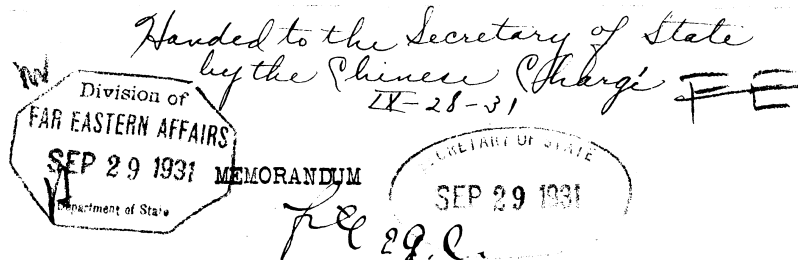 Handed to the Secretary of State
by the Chinese Chargé
IX-28-31
FE
Division of
FAR EASTERN AFFAIRS
SEP 29 1931
Department of State
MEMORANDUM
SECRETARY OF STATE
SEP 29 1931